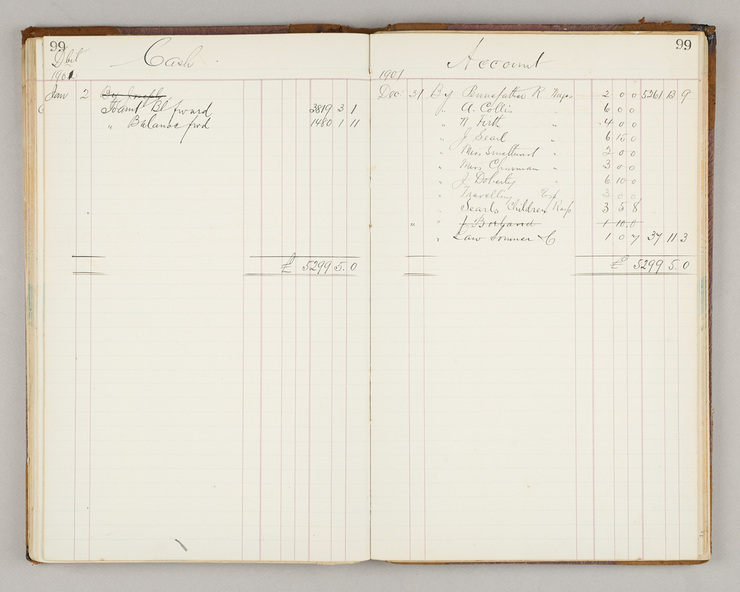 99
Dbit Cash
1901
Jan 2 By Joseph
To amt Bt forward 3819 3 1
" Balance fwd 1480 1 11
£ 5299 5 0
Account 99
1901
Dec 31 By R Wages 2 0 0 5261 13 9
" A. Collin " 6 0 0
" Firth " 4 0 0
" J Searl " 6 15 0
" Miss " 2 0 0
" Miss Chapman " 3 0 0
" J Doherty " 6 10 0
" Travelling Exp 3 0 0
" Searls Children 3 5 8
" " J 1 10 0
" Law Somner & C 1 0 7 37 11 3
£ 5299 5 0